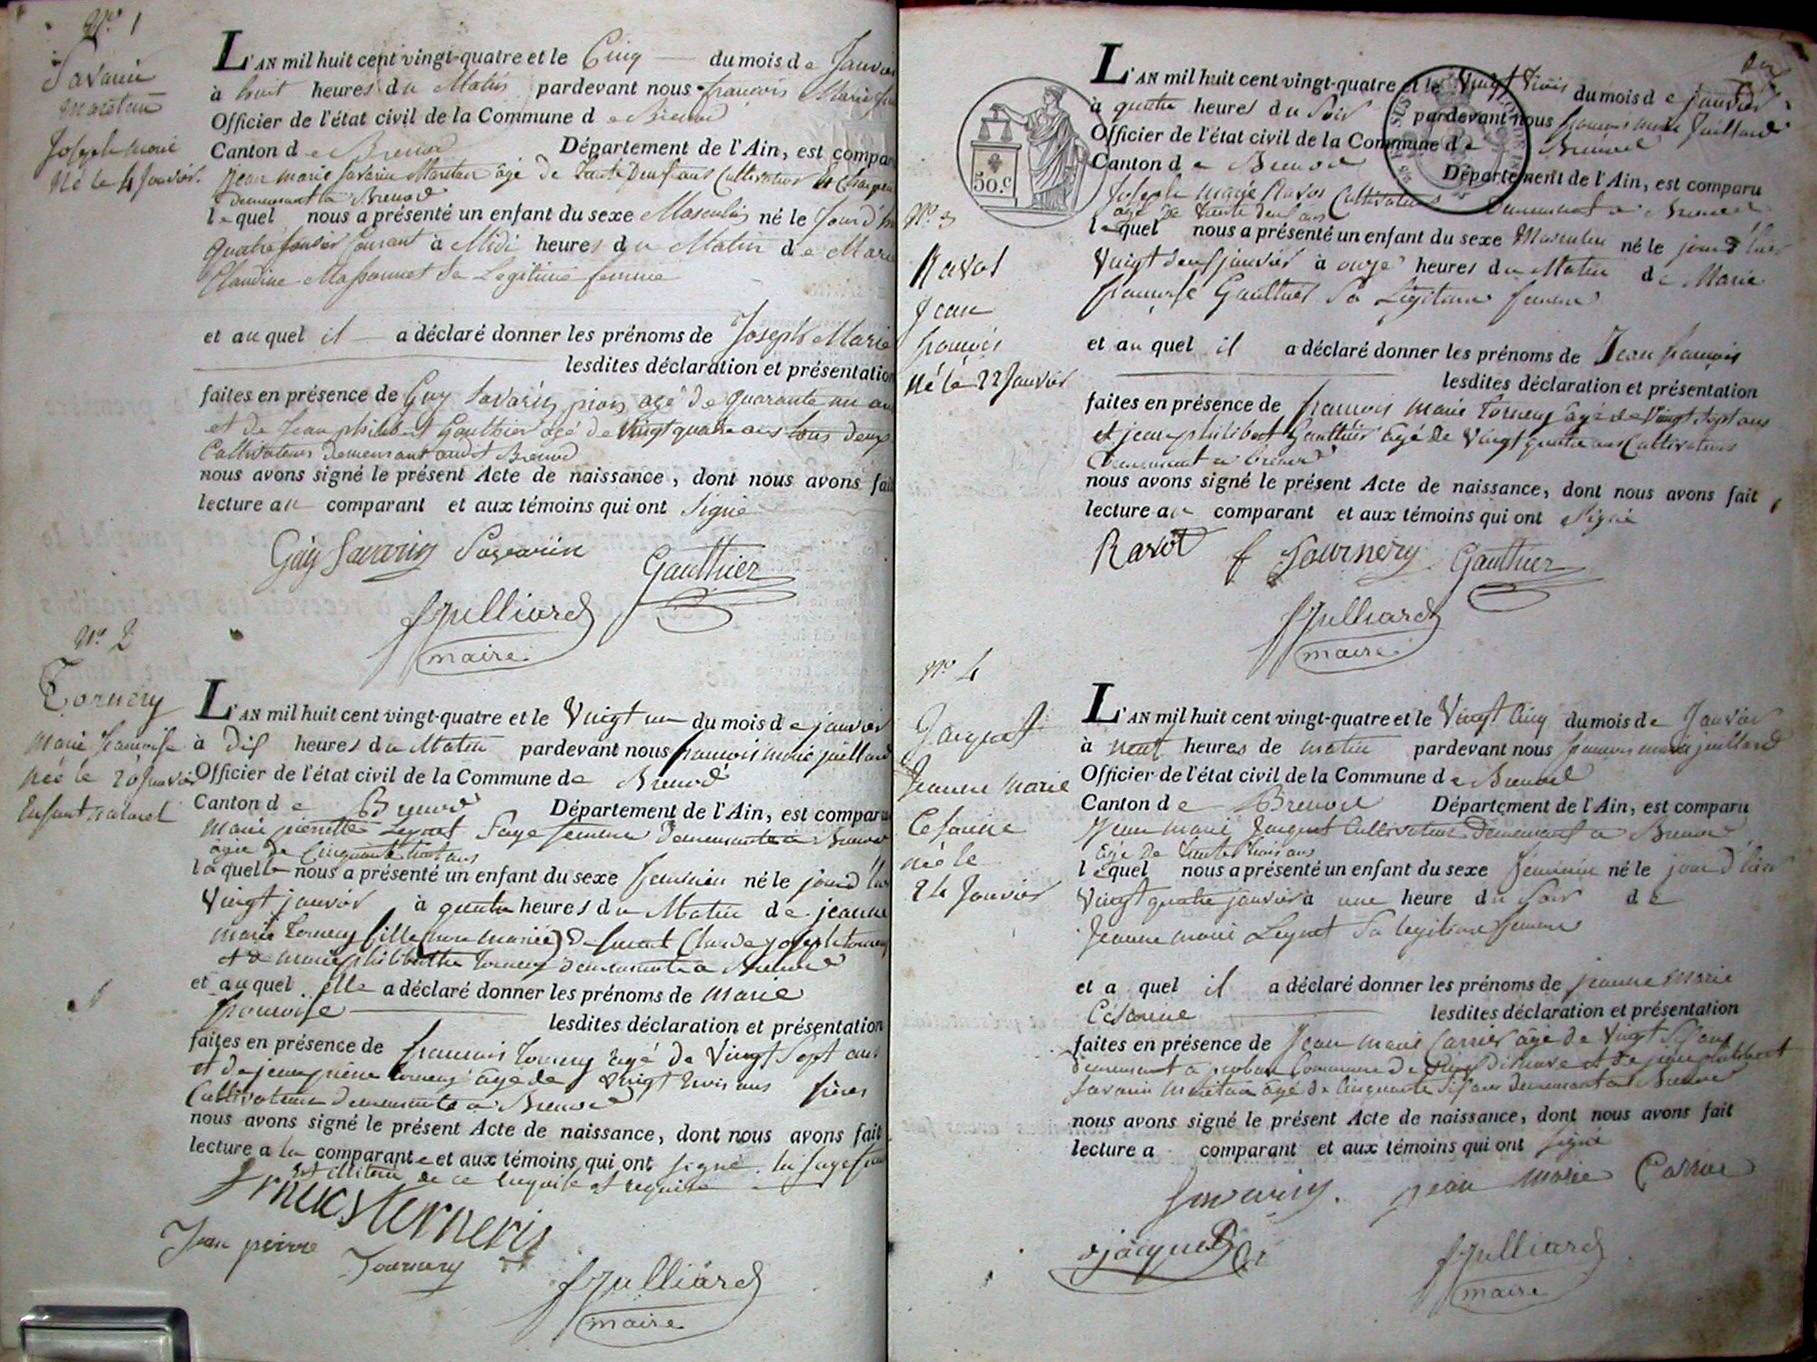 Nº 1
Savarin
Maretan
Joseph marie
Né le 4 Janvier.
L'AN mil huit cent vingt-quatre et le Cinq du mois de Janvier
à huit heures du Matin pardevant nous françois Marie
Officier de l'état civil de la Commune de Brenod
Canton de Brenod Département de l'Ain, est compar
Jean marie Savarin Maretan agé de trente Deux ans Cultivateur
Demeurant à Brenod
lequel nous a présenté un enfant du sexe Masculin né le Jour d'
quatre Janvier Courant à Midi heures du Matin de Marie
Claudine Massonnet Sa Légitime femme
et auquel il a déclaré donner les prénoms de Joseph Marie
lesdites déclaration et présentation
faites en présence de Guy Savarin agé de quarante un ans
et de Jean philibert Gauthier agé de Vingt quatre ans tous deux
Cultivateurs Demeurant audit Brenod
nous avons signé le présent Acte de naissance, dont nous avons fait
lecture au comparant et aux témoins qui ont Signé
Guy Savarin Savarin Gauthier
fJulliard
maire
Nº 2
Tornery
Marie françoise
Née le 20 Janvier
Enfant naturel
L'AN mil huit cent vingt-quatre et le Vingt un du mois de janvier
à Dix heures du Matin pardevant nous françois marie juillard
Officier de l'état civil de la Commune de Brenod
Canton de Brenod Département de l'Ain, est comparu
Marie pierrette Leynet Sage femme demeurante à Brenod
agée de Cinquante huit ans
laquelle nous a présenté un enfant du sexe feminin né le jour d'hier
Vingt janvier à quatre heures du Matin de jeanne
marie Tornery fille (non mariée) De feu Claude joseph tornery
et de marie philiberthe Tornery demeurante à Brenod
et auquel elle a déclaré donner les prénoms de Marie
françoise
lesdites déclaration et présentation
faites en présence de françois Tornery agé de Vingt Sept ans
et de jean pierre tornery agé de Vingt trois ans frères
Cultivateurs demeurants à Brenod
nous avons signé le présent Acte de naissance, dont nous avons fait
lecture a la comparante et aux témoins qui ont signé. la sage femme
illitérée de ce Enquise et requise
Jean pierre
Tournery
fJulliard
maire
50.C
L'AN mil huit cent vingt-quatre et le Vingt trois du mois de janvier
à quatre heures du Soir pardevant nous françois marie Juillard
Officier de l'état civil de la Commune de Brenod
Canton de Brenod Département de l'Ain, est comparu
Joseph Marie Ravot Cultivateur Demeurant à Brenod
agé De trente deux ans
Nº 3
Ravot
Jean
françois
Né le 22 Janvier
lequel nous a présenté un enfant du sexe Masculin né le jour d'hier
Vingt deux janvier à onze heures du Matin de Marie
françoise Gauthier Sa Légitime femme
et auquel il a déclaré donner les prénoms de Jean françois
lesdites déclaration et présentation
faites en présence de françois Marie Tornery agé de Vingt Sept ans
et jean philibert Gauthier agé de Vingt quatre ans Cultivateurs
Demeurant à brenod
nous avons signé le présent Acte de naissance, dont nous avons fait
lecture au comparant et aux témoins qui ont Signé
Ravot f Tournery Gauthier
fJulliard
maire
Nº 4
Jacquet
Jeanne Marie
Césarine
née le
24 Janvier
L'AN mil huit cent vingt-quatre et le Vingt Cinq du mois de Janvier
à neuf heures de matin pardevant nous françois marie juillard
Officier de l'état civil de la Commune de Brenod
Canton de Brenod Département de l'Ain, est comparu
Jean marie Jacquet Cultivateur Demeurant à Brenod
agé De trente trois ans
lequel nous a présenté un enfant du sexe féminin né le jour d'hier
Vingt quatre janvier à une heure du Soir de
Jeanne marie Leynet Sa légitime femme
et a quel il a déclaré donner les prénoms de jeanne Marie
Césarine
lesdites déclaration et présentation
faites en présence de Jean Marie Carrier agé de Vingt Six ans
demeurant à Commune de et de jean philibert
Savarin Maretan agé de Cinquante Six ans demeurant à Brenod
nous avons signé le présent Acte de naissance, dont nous avons fait
lecture a comparant et aux témoins qui ont signé
Savarin. Jean Marie Carrier
jacquet
fJulliard
maire